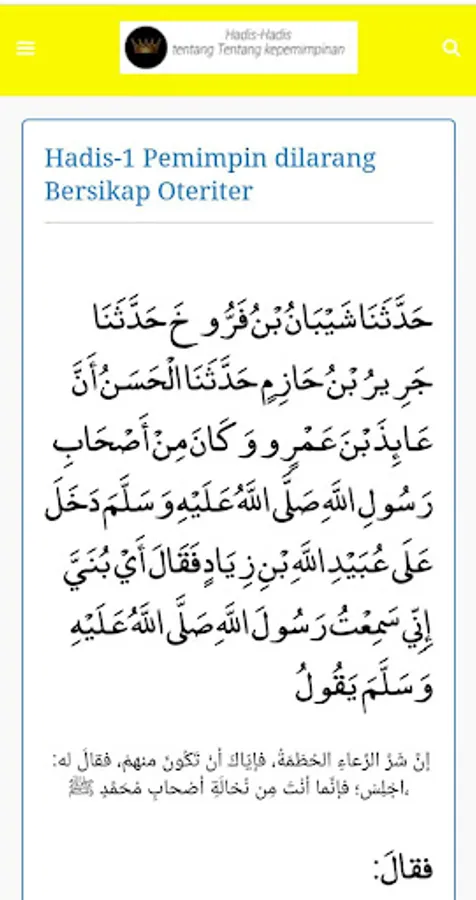 Hadis-Hadis
tentang Tentang kepemimpinan
Hadis-1 Pemimpin dilarang
Bersikap Oteriter
حَدَّثَنَا شَيْبَانُ بْنُ فَرُّوخَ حَدَّثَنَا
جَرِيرُ بْنُ حَازِمٍ حَدَّثَنَا الْحَسَنُ أَنَّ
عَائِذَ بْنَ عَمْرٍو وَكَانَ مِنْ أَصْحَابِ
رَسُولِ اللَّهِ صَلَّى اللَّهُ عَلَيْهِ وَسَلَّمَ دَخَلَ
عَلَى عُبَيْدِ اللَّهِ بْنِ زِيَادٍ فَقَالَ أَيْ بُنَيَّ
إِنِّي سَمِعْتُ رَسُولَ اللَّهِ صَلَّى اللَّهُ عَلَيْهِ
وَسَلَّمَ يَقُولُ
إنَّ شَرَّ الرِّعاءِ الحُطَمَةُ، فإيّاكَ أن تَكُونَ منهمْ، فقالَ له:
اجْلِسْ؛ فإنَّما أنْتَ مِن نُخالَةِ أصْحابِ مُحَمَّدٍ ﷺ،
فقالَ: